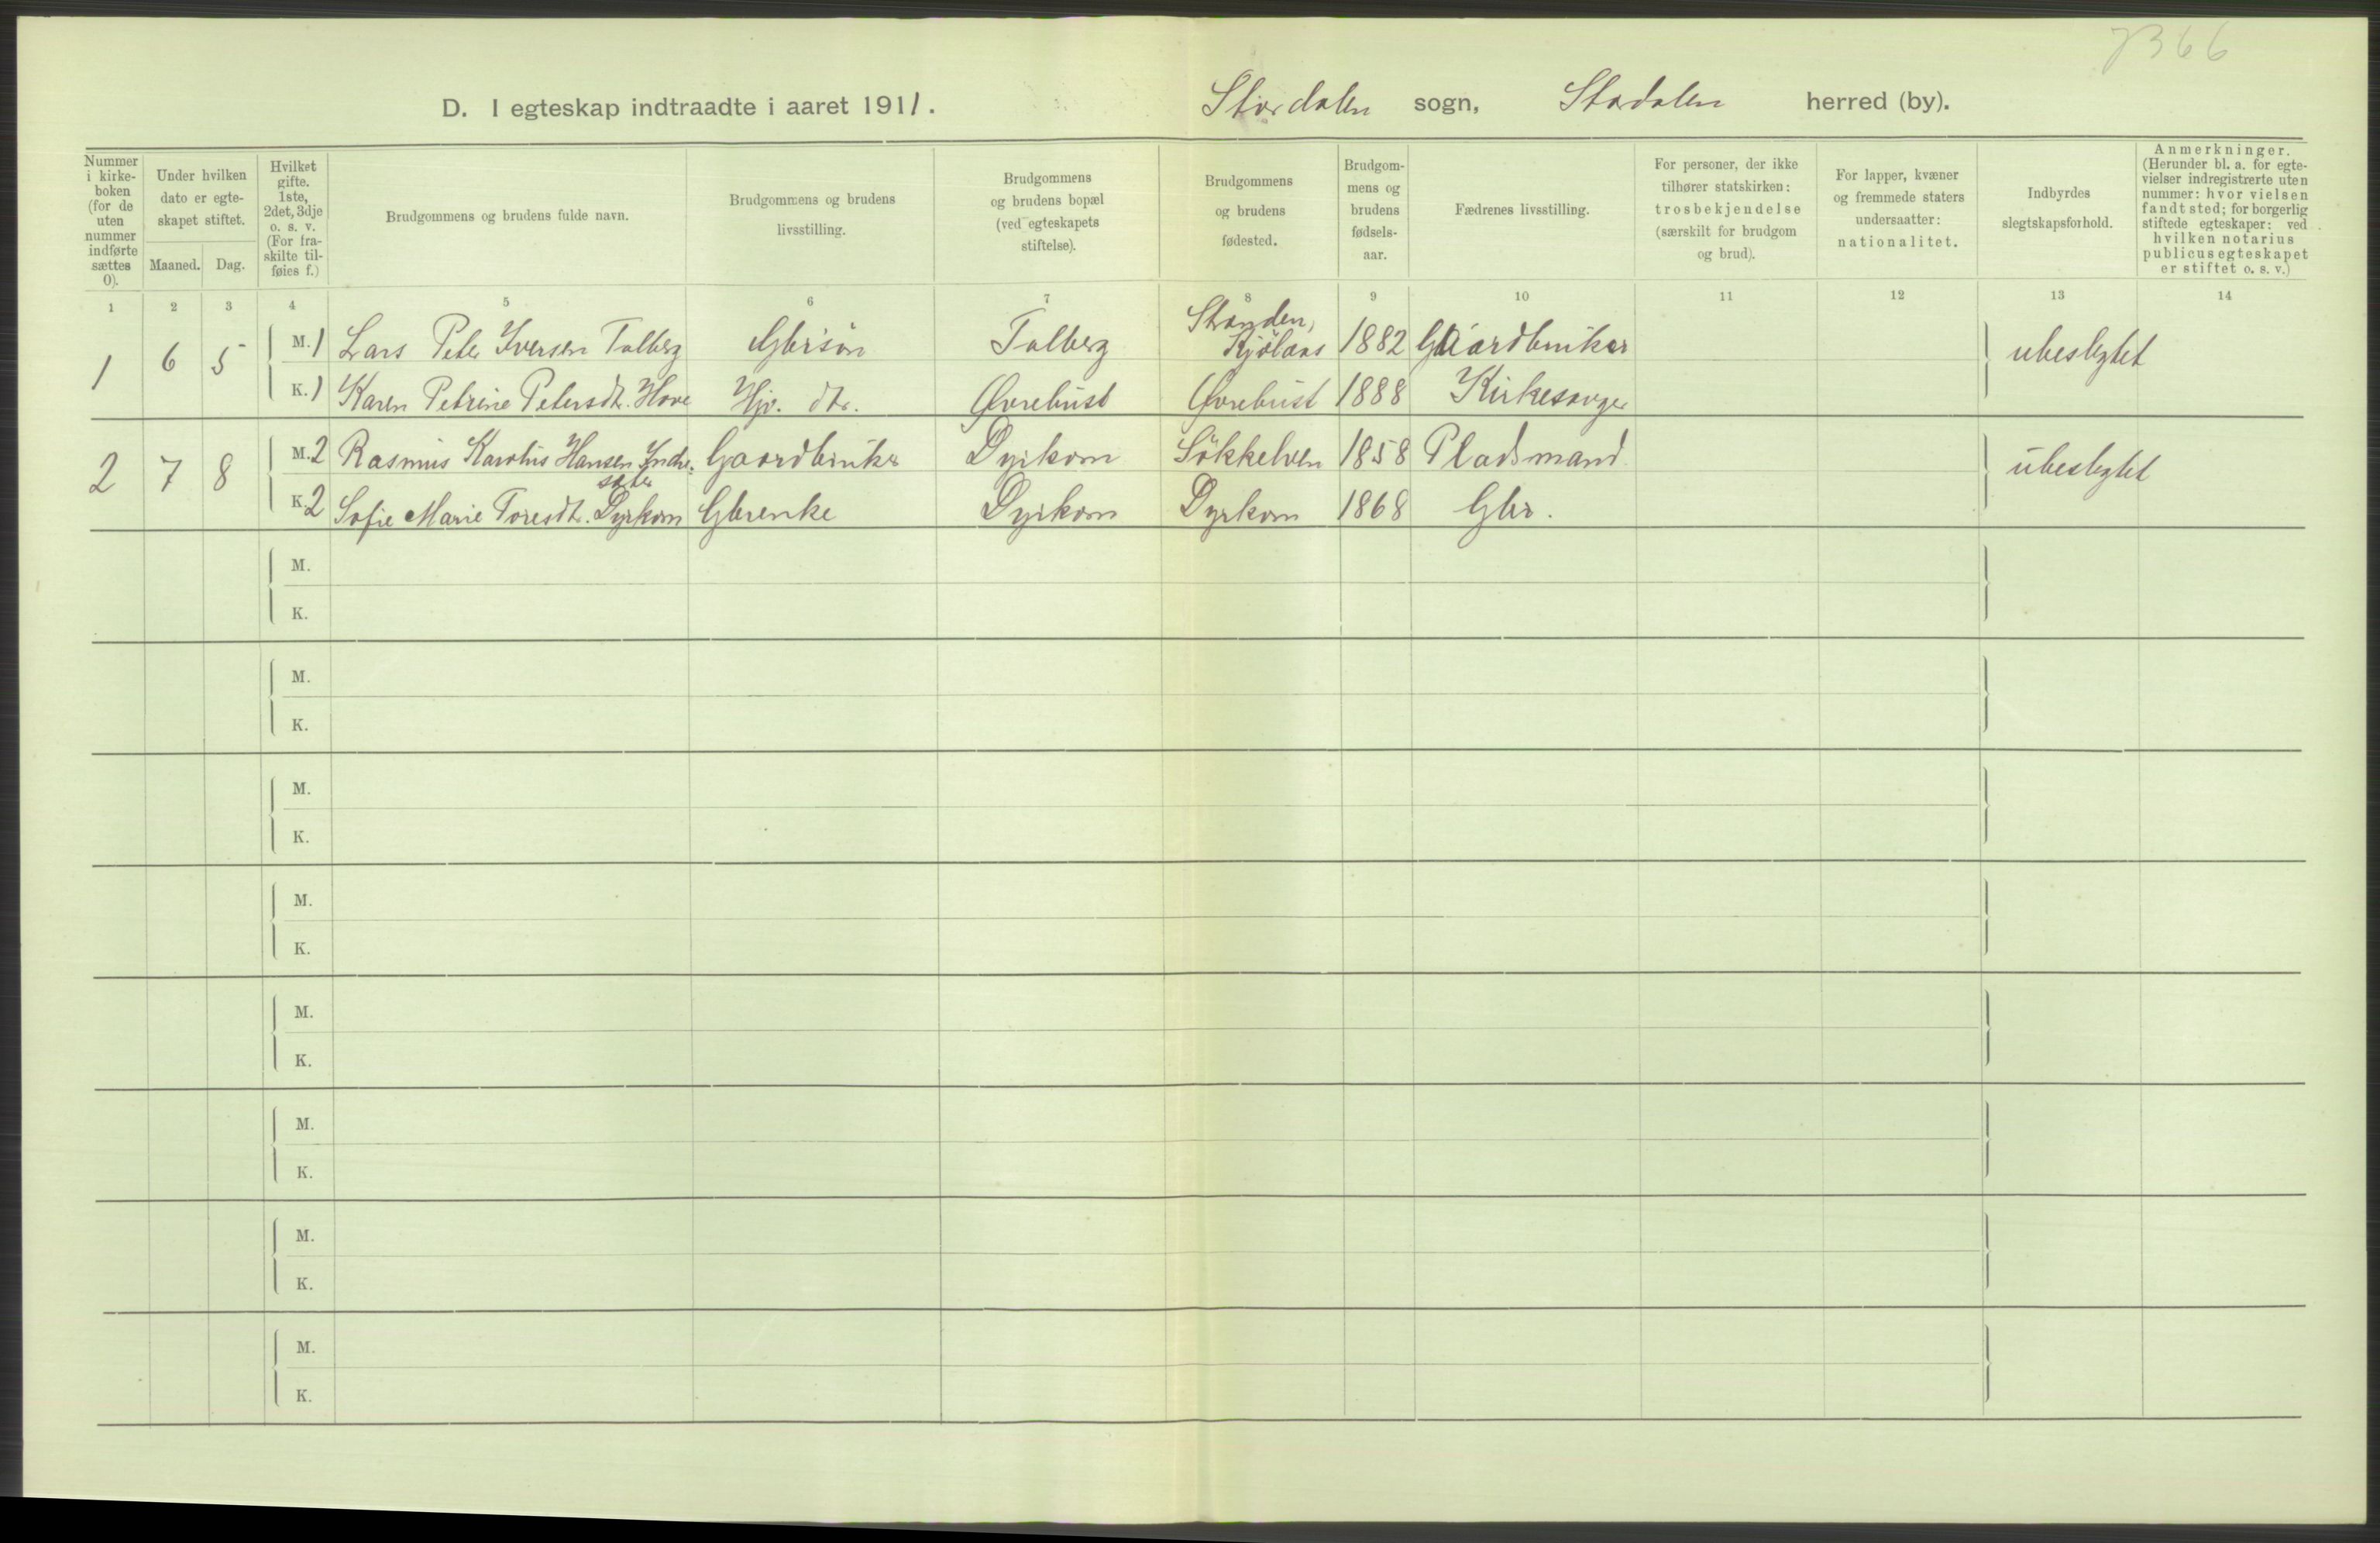 7366
D. I egteskap indtraadte i aaret 1911. Stordalen sogn, Stordalen herred (by).
Nummer i kirke- boken (for de uten nummer indførte sættes 0).
Under hvilken dato er egte- skapet stiftet.
Maaned. Dag.
Hvilket gifte. 1ste, 2det, 3dje o. s. v. (For fra- skilte til- føies f.)
Brudgommens og brudens fulde navn.
Brudgommens og brudens livsstilling.
Brudgommens og brudens bopæl (ved egteskapets stiftelse).
Brudgommens og brudens fødested.
Brudgom- mens og brudens fødsels- aar.
Fædrenes livsstilling.
For personer, der ikke tilhører statskirken: trosbekjendelse (særskilt for brudgom og brud).
For lapper, kvæner og fremmede staters undersaatter: nationalitet.
Indbyrdes slegtskapsforhold.
Anmerkninger. (Herunder bl. a. for egte- vielser indregistrerte uten nummer: hvor vielsen fandt sted; for borgerlig stiftede egteskaper: ved hvilken notarius publicus egteskapet er stiftet o. s. v.)
1 2 3 4 5 6 7 8 9 10 11 12 13 14
1 6 5 M. 1 Lars Peter Iversen Talberg Gbrsøn Talberg Stranden, Kjølaas 1882 Gaardbruker ubeslegtet
K. 1 Karen Petrine Petersdt. Hove Hjv. dtr. Øvrebust Øvrebust 1888 Kirkesanger
2 7 8 M. 2 Rasmus Karolus Hansen Indre- sæter Gaardbruker Dyrkorn Søkkelven 1858 Pladsmand ubeslegtet
K. 2 Sofie Marie Toresdt. Dyrkorn Gbrenke Dyrkorn Dyrkorn 1868 Gbr.
M.
K.
M.
K.
M.
K.
M.
K.
M.
K.
M.
K.
M.
K.
M.
K.